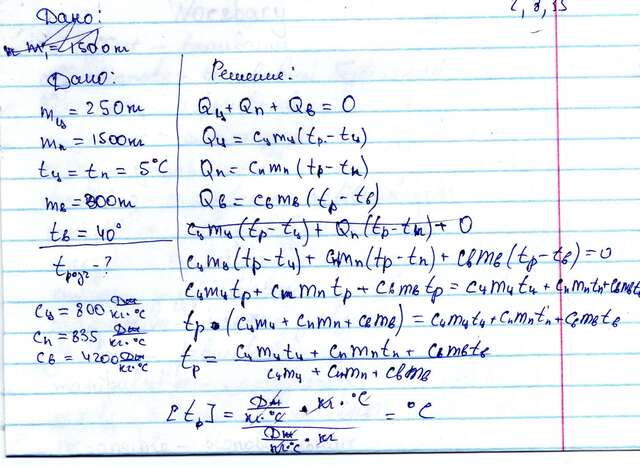 2, 8, 35
Дано:
m₁ = 1500т
Дано:
mц = 250т
mп = 1500т
tц = tп = 5°C
mв = 800т
tв = 40°
tраз - ?
cц = 800 Дж/кг·°C
cп = 835 Дж/кг·°C
cв = 4200 Дж/кг·°C
Решение:
Qц + Qп + Qв = 0
Qц = cцmц(tр - tц)
Qп = cпmп(tр - tп)
Qв = cвmв(tр - tв)
cцmц(tр - tц) + Qп(tр - tп) + 0
cцmц(tр - tц) + cпmп(tр - tп) + cвmв(tр - tв) = 0
cцmцtр + cпmпtр + cвmвtр = cцmцtц + cпmпtп + cвmвt
tр · (cцmц + cпmп + cвmв) = cцmцtц + cпmпtп + cвmвtв
tр = cцmцtц + cпmпtп + cвmвtв / cцmц + cпmп + cвmв
[tр] = Дж/кг·°C · кг·°C / Дж/кг·°C · кг = °C